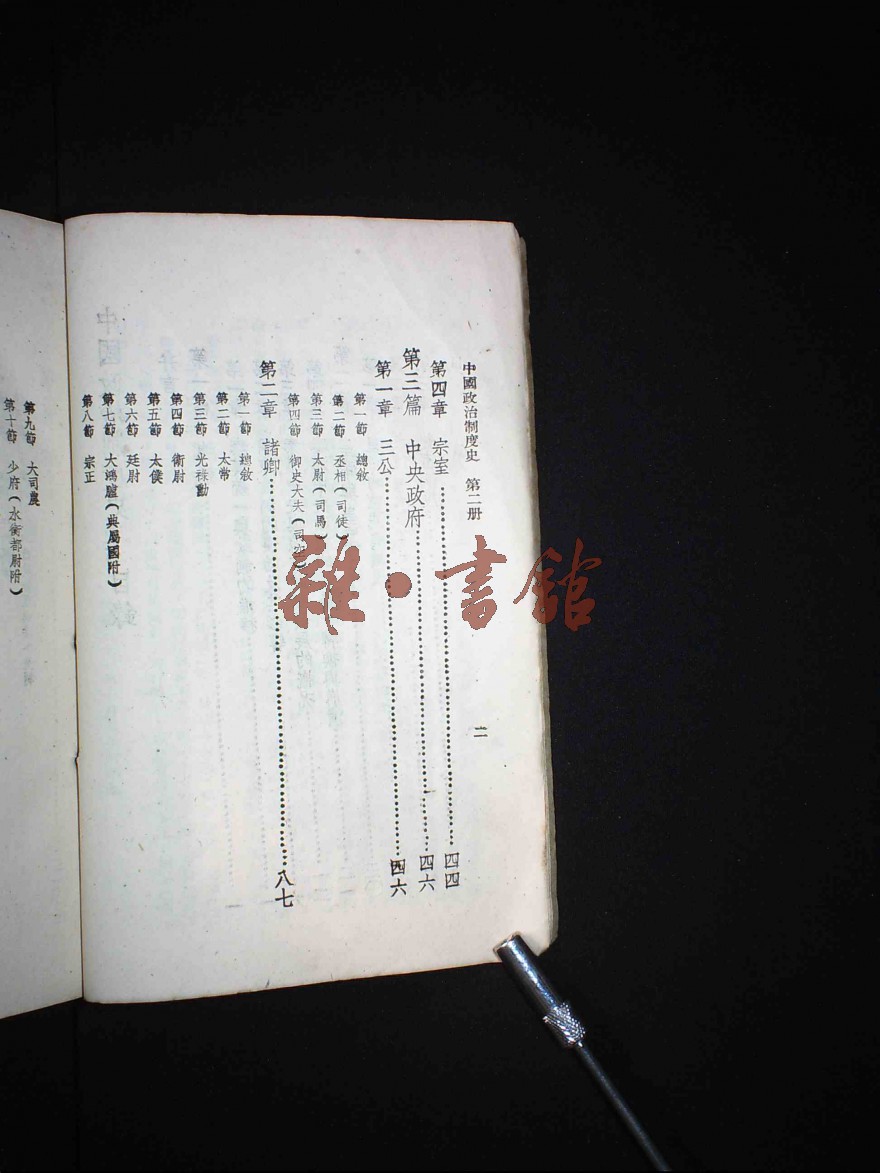 中國政治制度史 第二册
二
第四章 宗室……四四
第三篇 中央政府……四六
第一章 三公……四六
第一節 總敘
第二節 丞相(司徒)
第三節 太尉(司馬)
第四節 御史大夫(司空)
第二章 諸卿……八七
第一節 總敘
第二節 太常
第三節 光祿勳
第四節 衛尉
第五節 太僕
第六節 廷尉
第七節 大鴻臚(典屬國附)
第八節 宗正
第九節 大司農
第十節 少府(水衡都尉附)
雜·書館